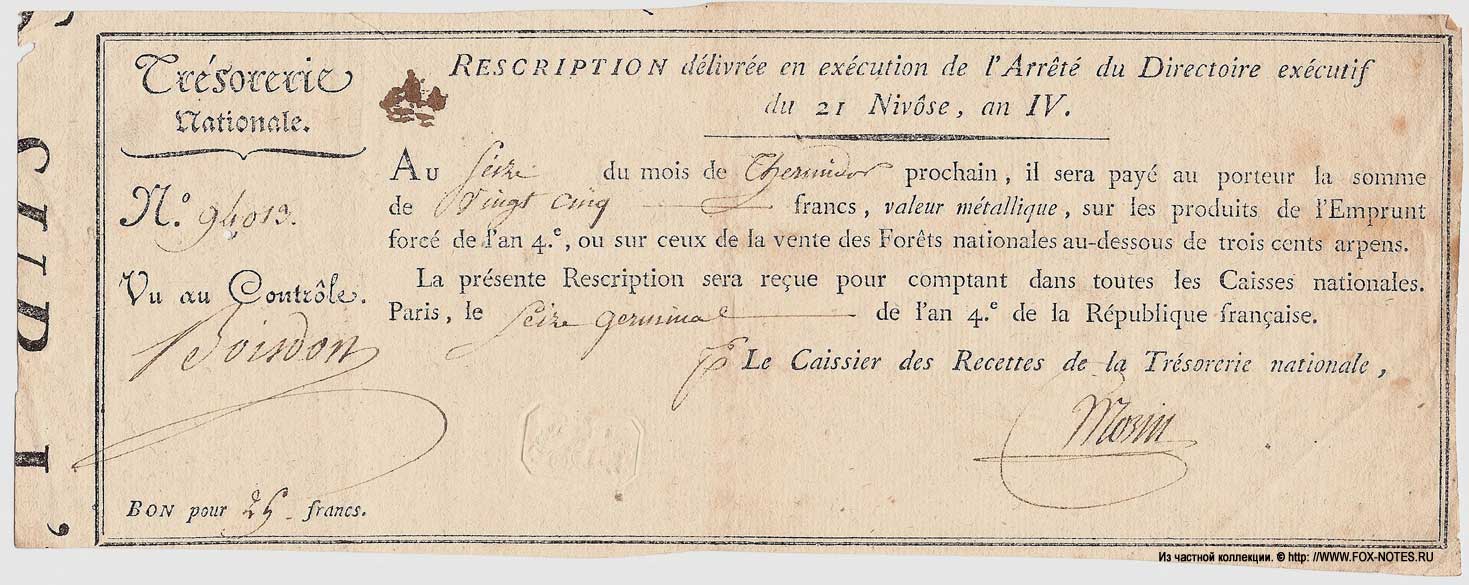 Trésorerie
Nationale.
N.° 94013.
Vu au Contrôle.
Boisdon
BON pour 25 francs.
RESCRIPTION délivrée en exécution de l'Arrêté du Directoire exécutif
du 21 Nivôse, an IV.
AU Seize du mois de Thermidor prochain, il sera payé au porteur la somme
de Vingt cinq francs, valeur métallique, sur les produits de l'Emprunt
forcé de l'an 4.e, ou sur ceux de la vente des Forêts nationales au-dessous de trois cents arpens.
La présente Rescription sera reçue pour comptant dans toutes les Caisses nationales.
Paris, le Seize germinal de l'an 4.e de la République française.
Le Caissier des Recettes de la Trésorerie nationale,
Morin
Из частной коллекции. © http: //WWW.FOX-NOTES.RU